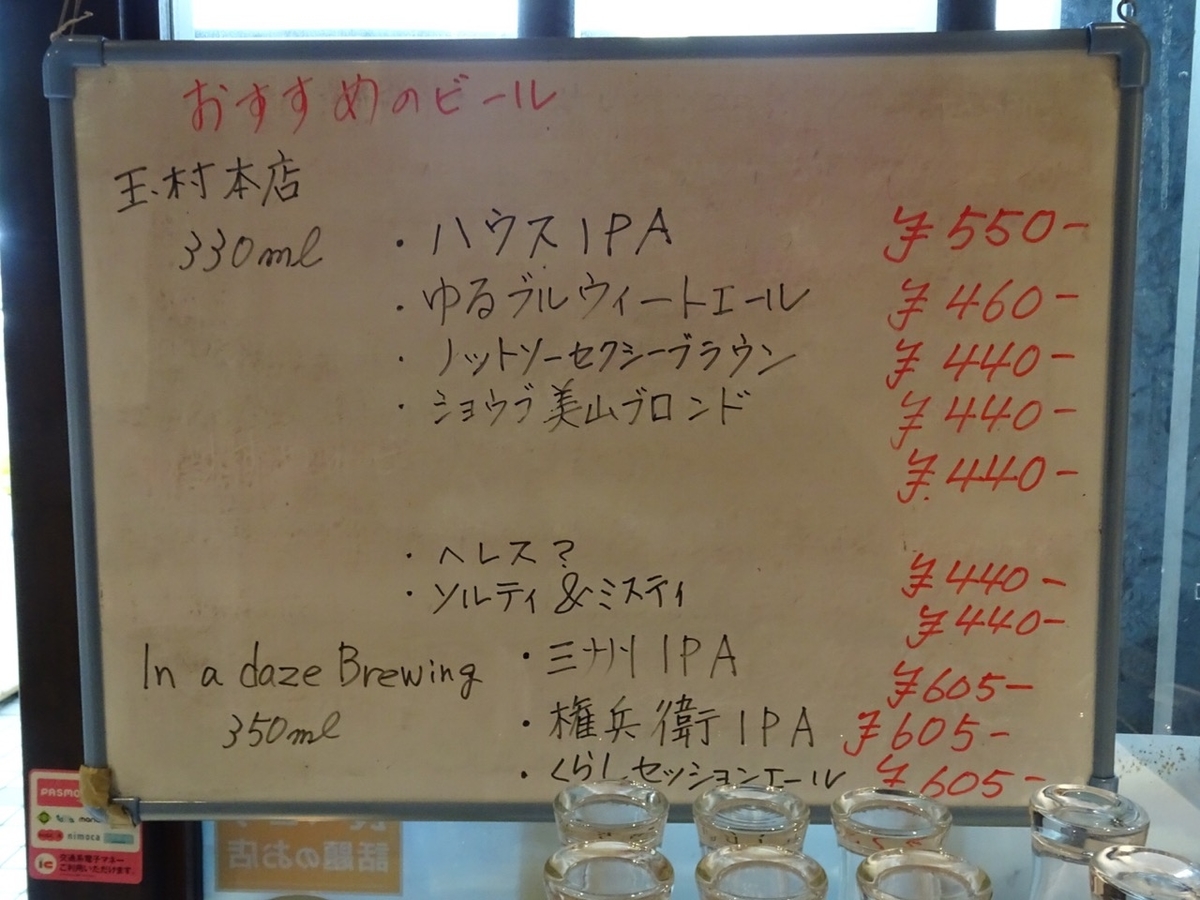 おすすめのビール
玉村本店
330ml
・ハウスIPA ¥550-
・ゆるブルウィートエール ¥460-
・ノットソーセクシーブラウン ¥440-
・ショウブ美山ブロンド ¥440-
¥440-
・ヘレス?
・ソルティ&ミスティ ¥440-
¥440-
In a daze Brewing ・三州IPA ¥605-
350ml ・権兵衛IPA ¥605-
・くらしセッションエール ¥605-
PASMO
nimoca
IC 交通系電子マネー
ご利用いただけます。
話題のお店